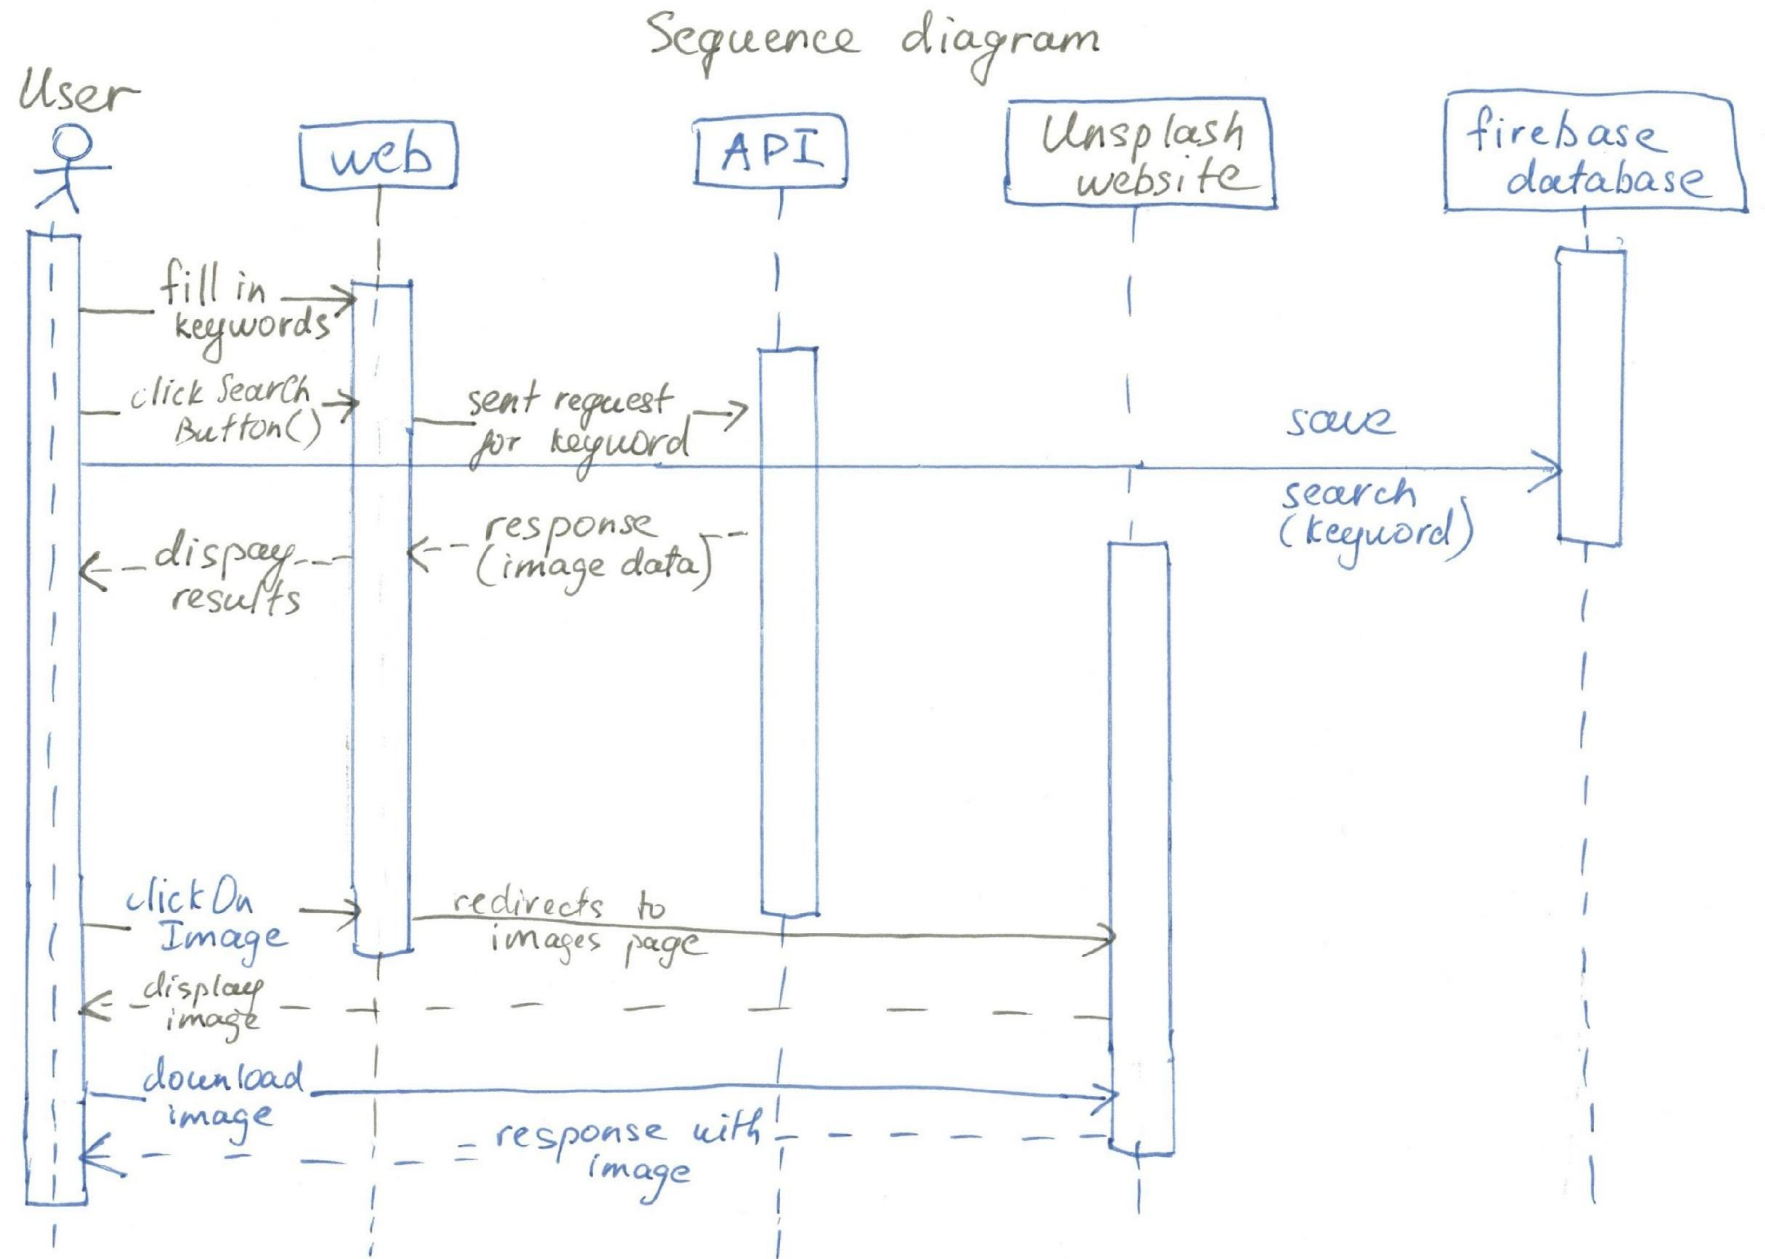 Sequence diagram
User
web
API
Unsplash
website
firebase
database
fill in
keywords
click Search
Button()
sent request
for keyword
save
search
(keyword)
response
(image data)
dispay
results
clickOn
Image
redirects to
images page
display
image
download
image
response with
image